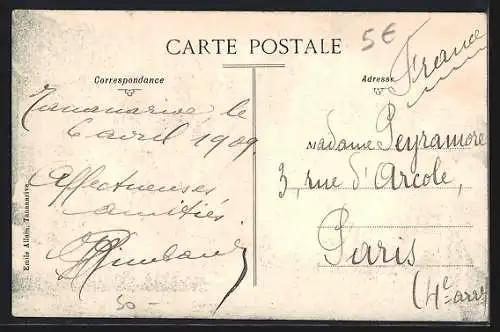 CARTE POSTALE
5€
Correspondance
Adresse
France
Tananarive, le
6 avril 1909.
Affectueuses
amitiés.
Madame Peyramore
3, rue d'Arcole,
Paris
(4e arrt
50 -
Emile Allain, Tananarive